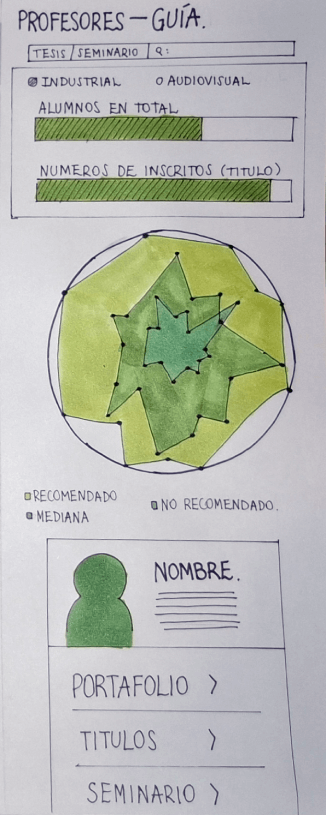 PROFESORES — GUÍA.
TESIS / SEMINARIO | Q:
INDUSTRIAL AUDIOVISUAL
ALUMNOS EN TOTAL
NUMEROS DE INSCRITOS (TITULO)
RECOMENDADO
NO RECOMENDADO.
MEDIANA
NOMBRE.
PORTAFOLIO >
TITULOS >
SEMINARIO >